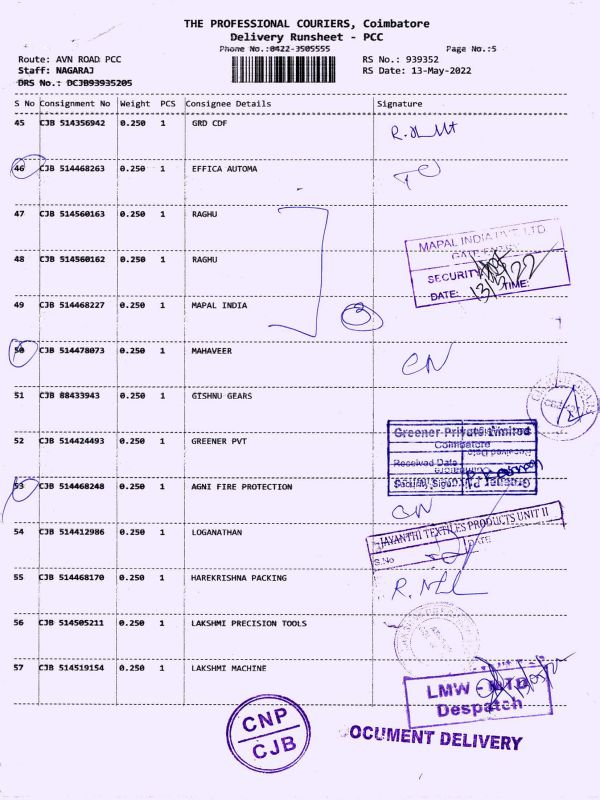 THE PROFESSIONAL COURIERS, Coimbatore
Delivery Runsheet - PCC
Phone No.:0422-3505555
Page No.:5
Route: AVN ROAD PCC
RS No.: 939352
Staff: NAGARAJ
RS Date: 13-May-2022
DRS No.: DCJB93935205
S No Consignment No Weight PCS Consignee Details Signature
45 CJB 514356942 0.250 1 GRD CDF
46 CJB 514468263 0.250 1 EFFICA AUTOMA
47 CJB 514560163 0.250 1 RAGHU
MAPAL INDIA PVT. LTD
GATE ENTRY
48 CJB 514560162 0.250 1 RAGHU
SECURITY
DATE: 13/5/22 TIME:
49 CJB 514468227 0.250 1 MAPAL INDIA
3
50 CJB 514478073 0.250 1 MAHAVEER
CN
51 CJB 88433943 0.250 1 GISHNU GEARS
Greener Private Limited
Coimbatore
52 CJB 514424493 0.250 1 GREENER PVT
Received Date
53 CJB 514468248 0.250 1 AGNI FIRE PROTECTION
CN
JAYANTHI TEXTILES PRODUCTS UNIT II
54 CJB 514412986 0.250 1 LOGANATHAN
S.No DATE
55 CJB 514468170 0.250 1 HAREKRISHNA PACKING
56 CJB 514505211 0.250 1 LAKSHMI PRECISION TOOLS
57 CJB 514519154 0.250 1 LAKSHMI MACHINE
LMW -
Despatch
CNP
CJB
DOCUMENT DELIVERY